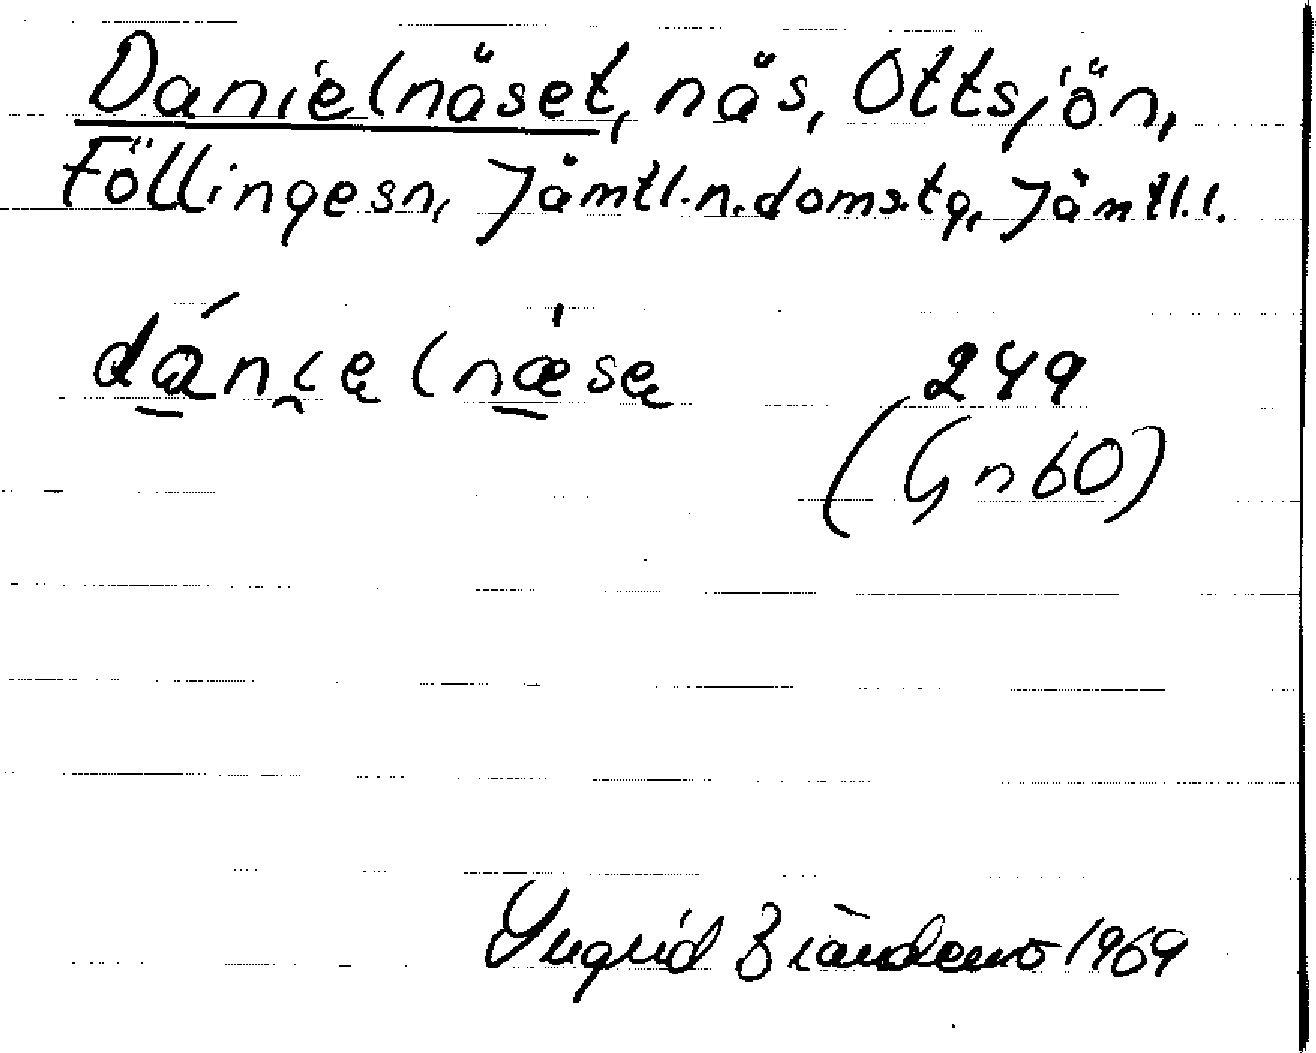 Danielnäset, näs, Ottsjön,
Föllingesn, Jämtl.n.doms.tg, Jämtl.l.
dánielnæse 249
(Gn60)
Ingrid 1969